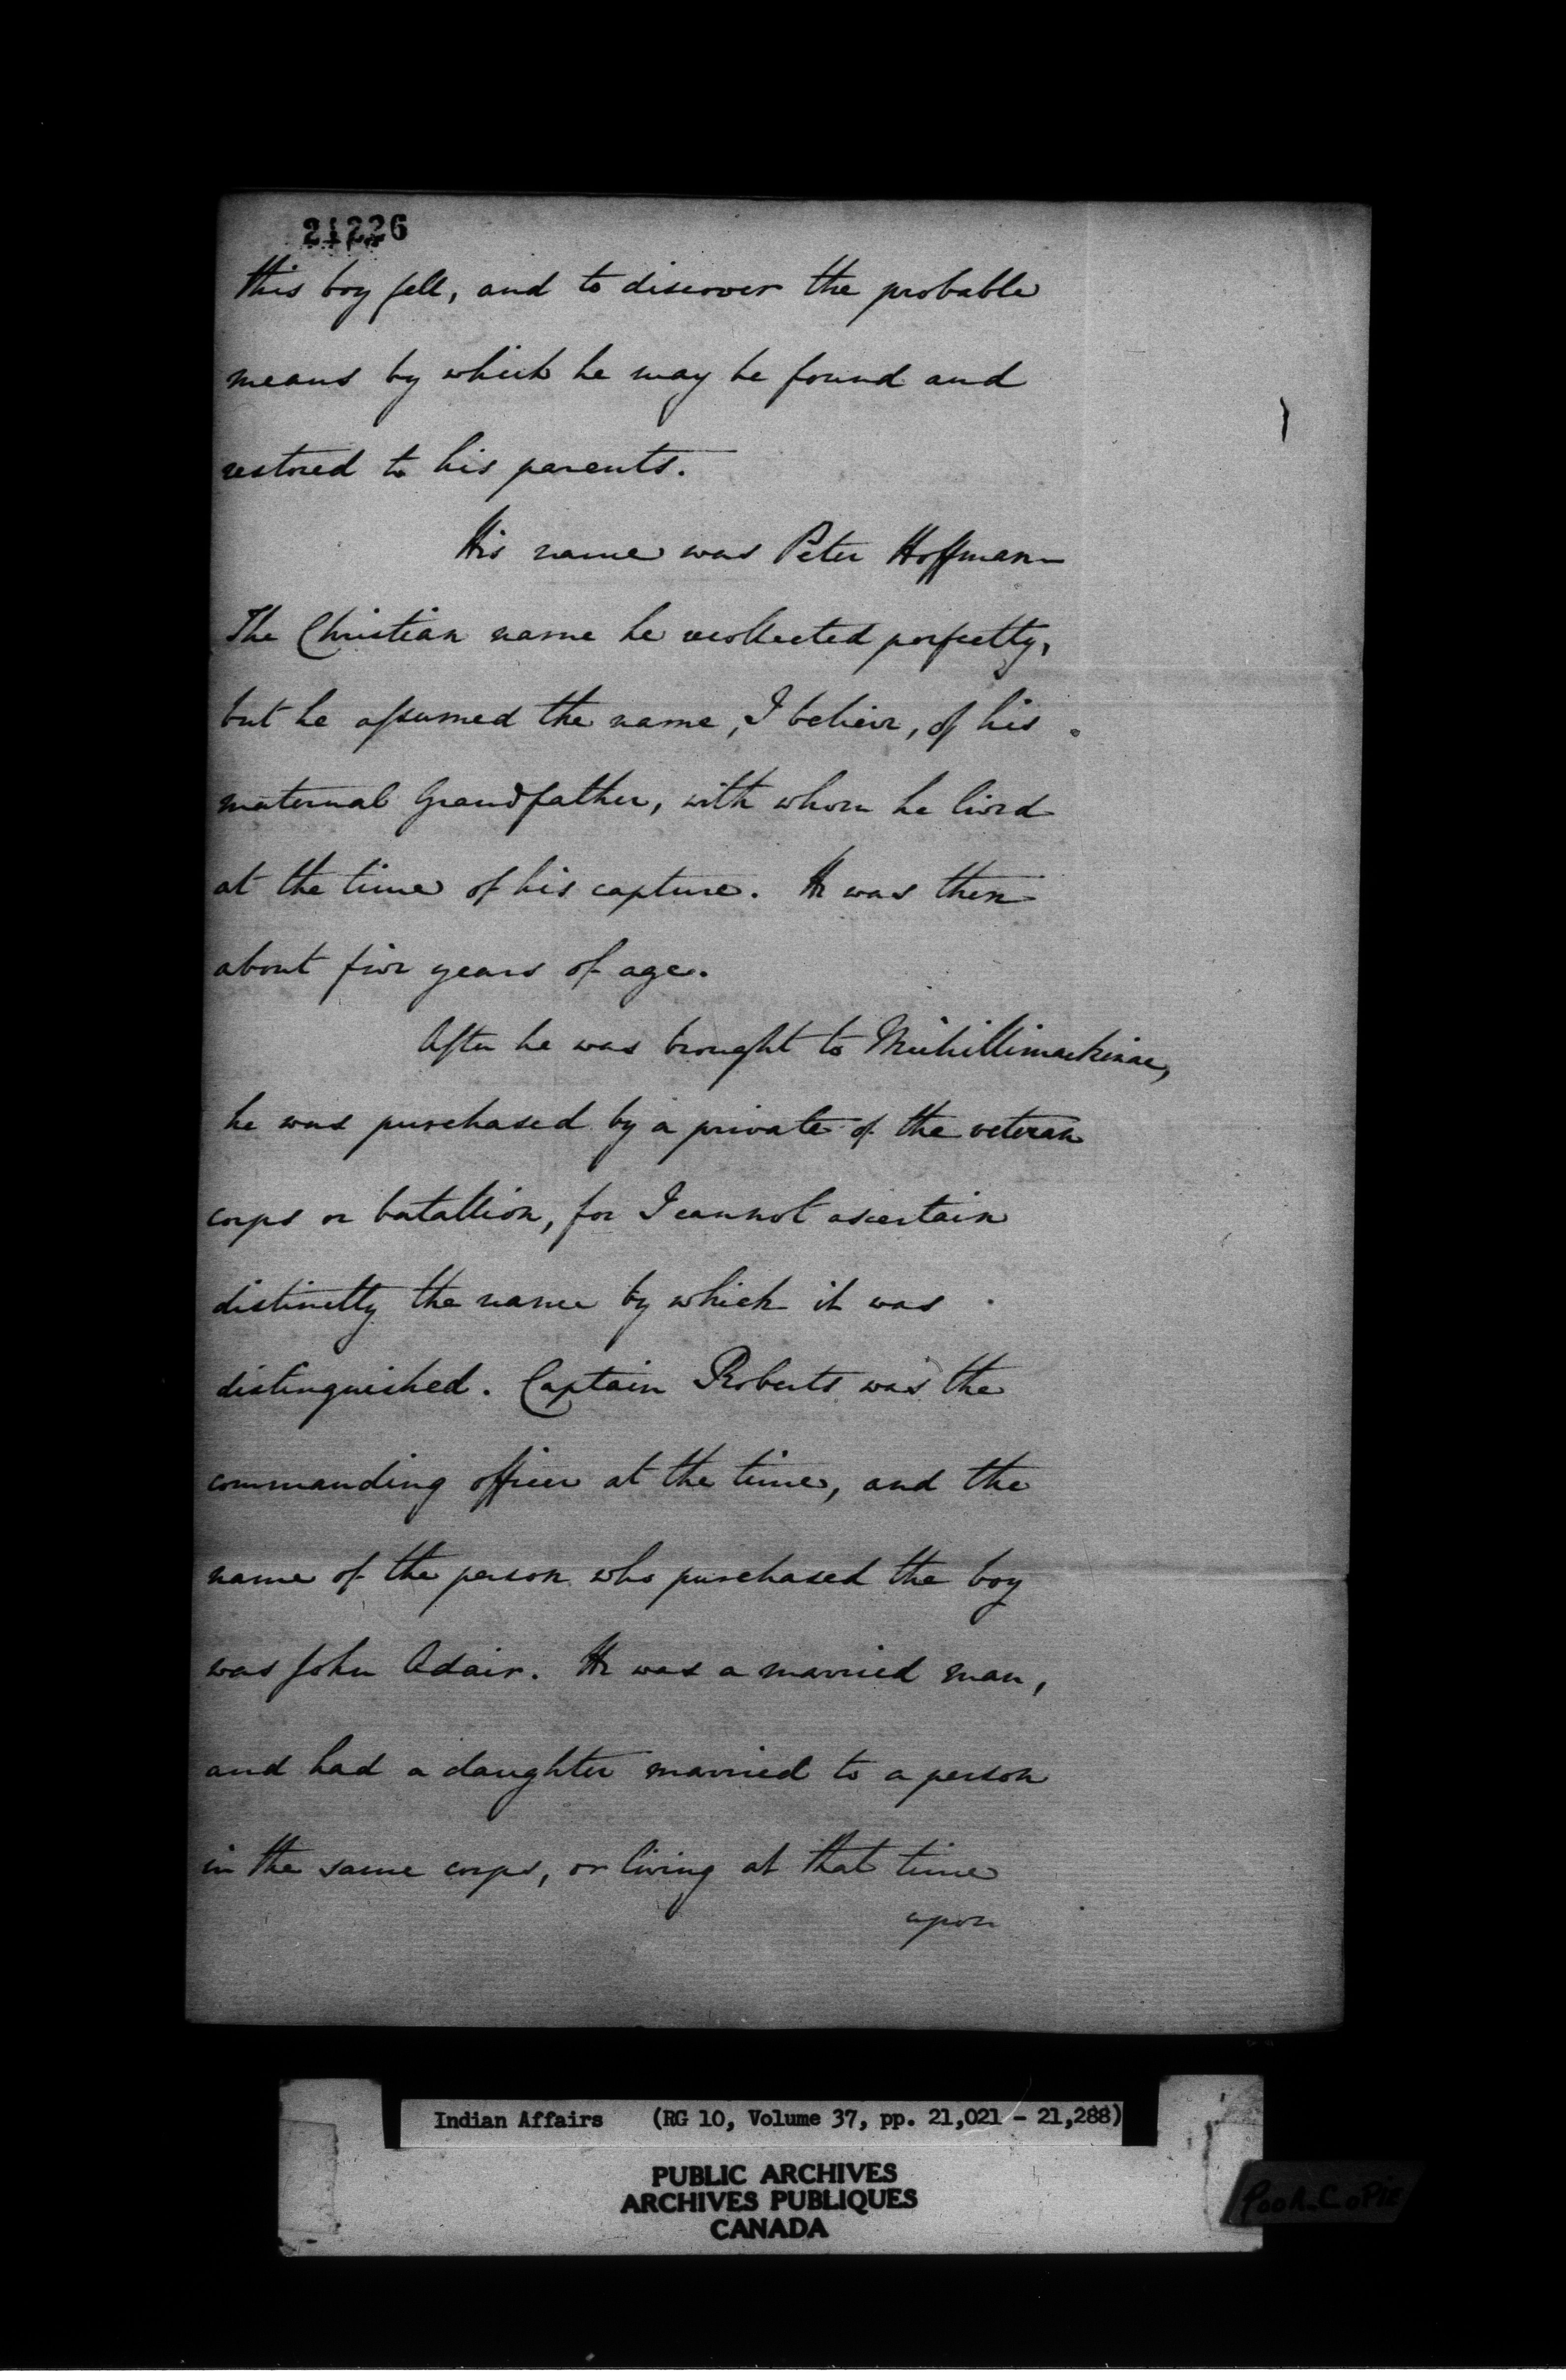 21226
this boy fell, and to discover the probable
means by which he may be found and
restored to his parents.
His name was Peter Hoffman
The Christian name he recollected perfectly,
but he assumed the name, I believe, of his
maternal Grandfather, with whom he lived
at the time of his capture. He was then
about five years of age.
After he was brought to Michillimackinac,
he was purchased by a private of the veteran
corps or batallion, for I cannot ascertain
distinctly the name by which it was
distinguished. Captain Roberts was the
commanding officer at the time, and the
name of the person who purchased the boy
was John Adair. He was a married man,
and had a daughter married to a person
in the same corps, or living at that time
upon
Indian Affairs (RG 10, Volume 37, pp. 21,021 - 21,288)
PUBLIC ARCHIVES
ARCHIVES PUBLIQUES
CANADA
Poor Copie